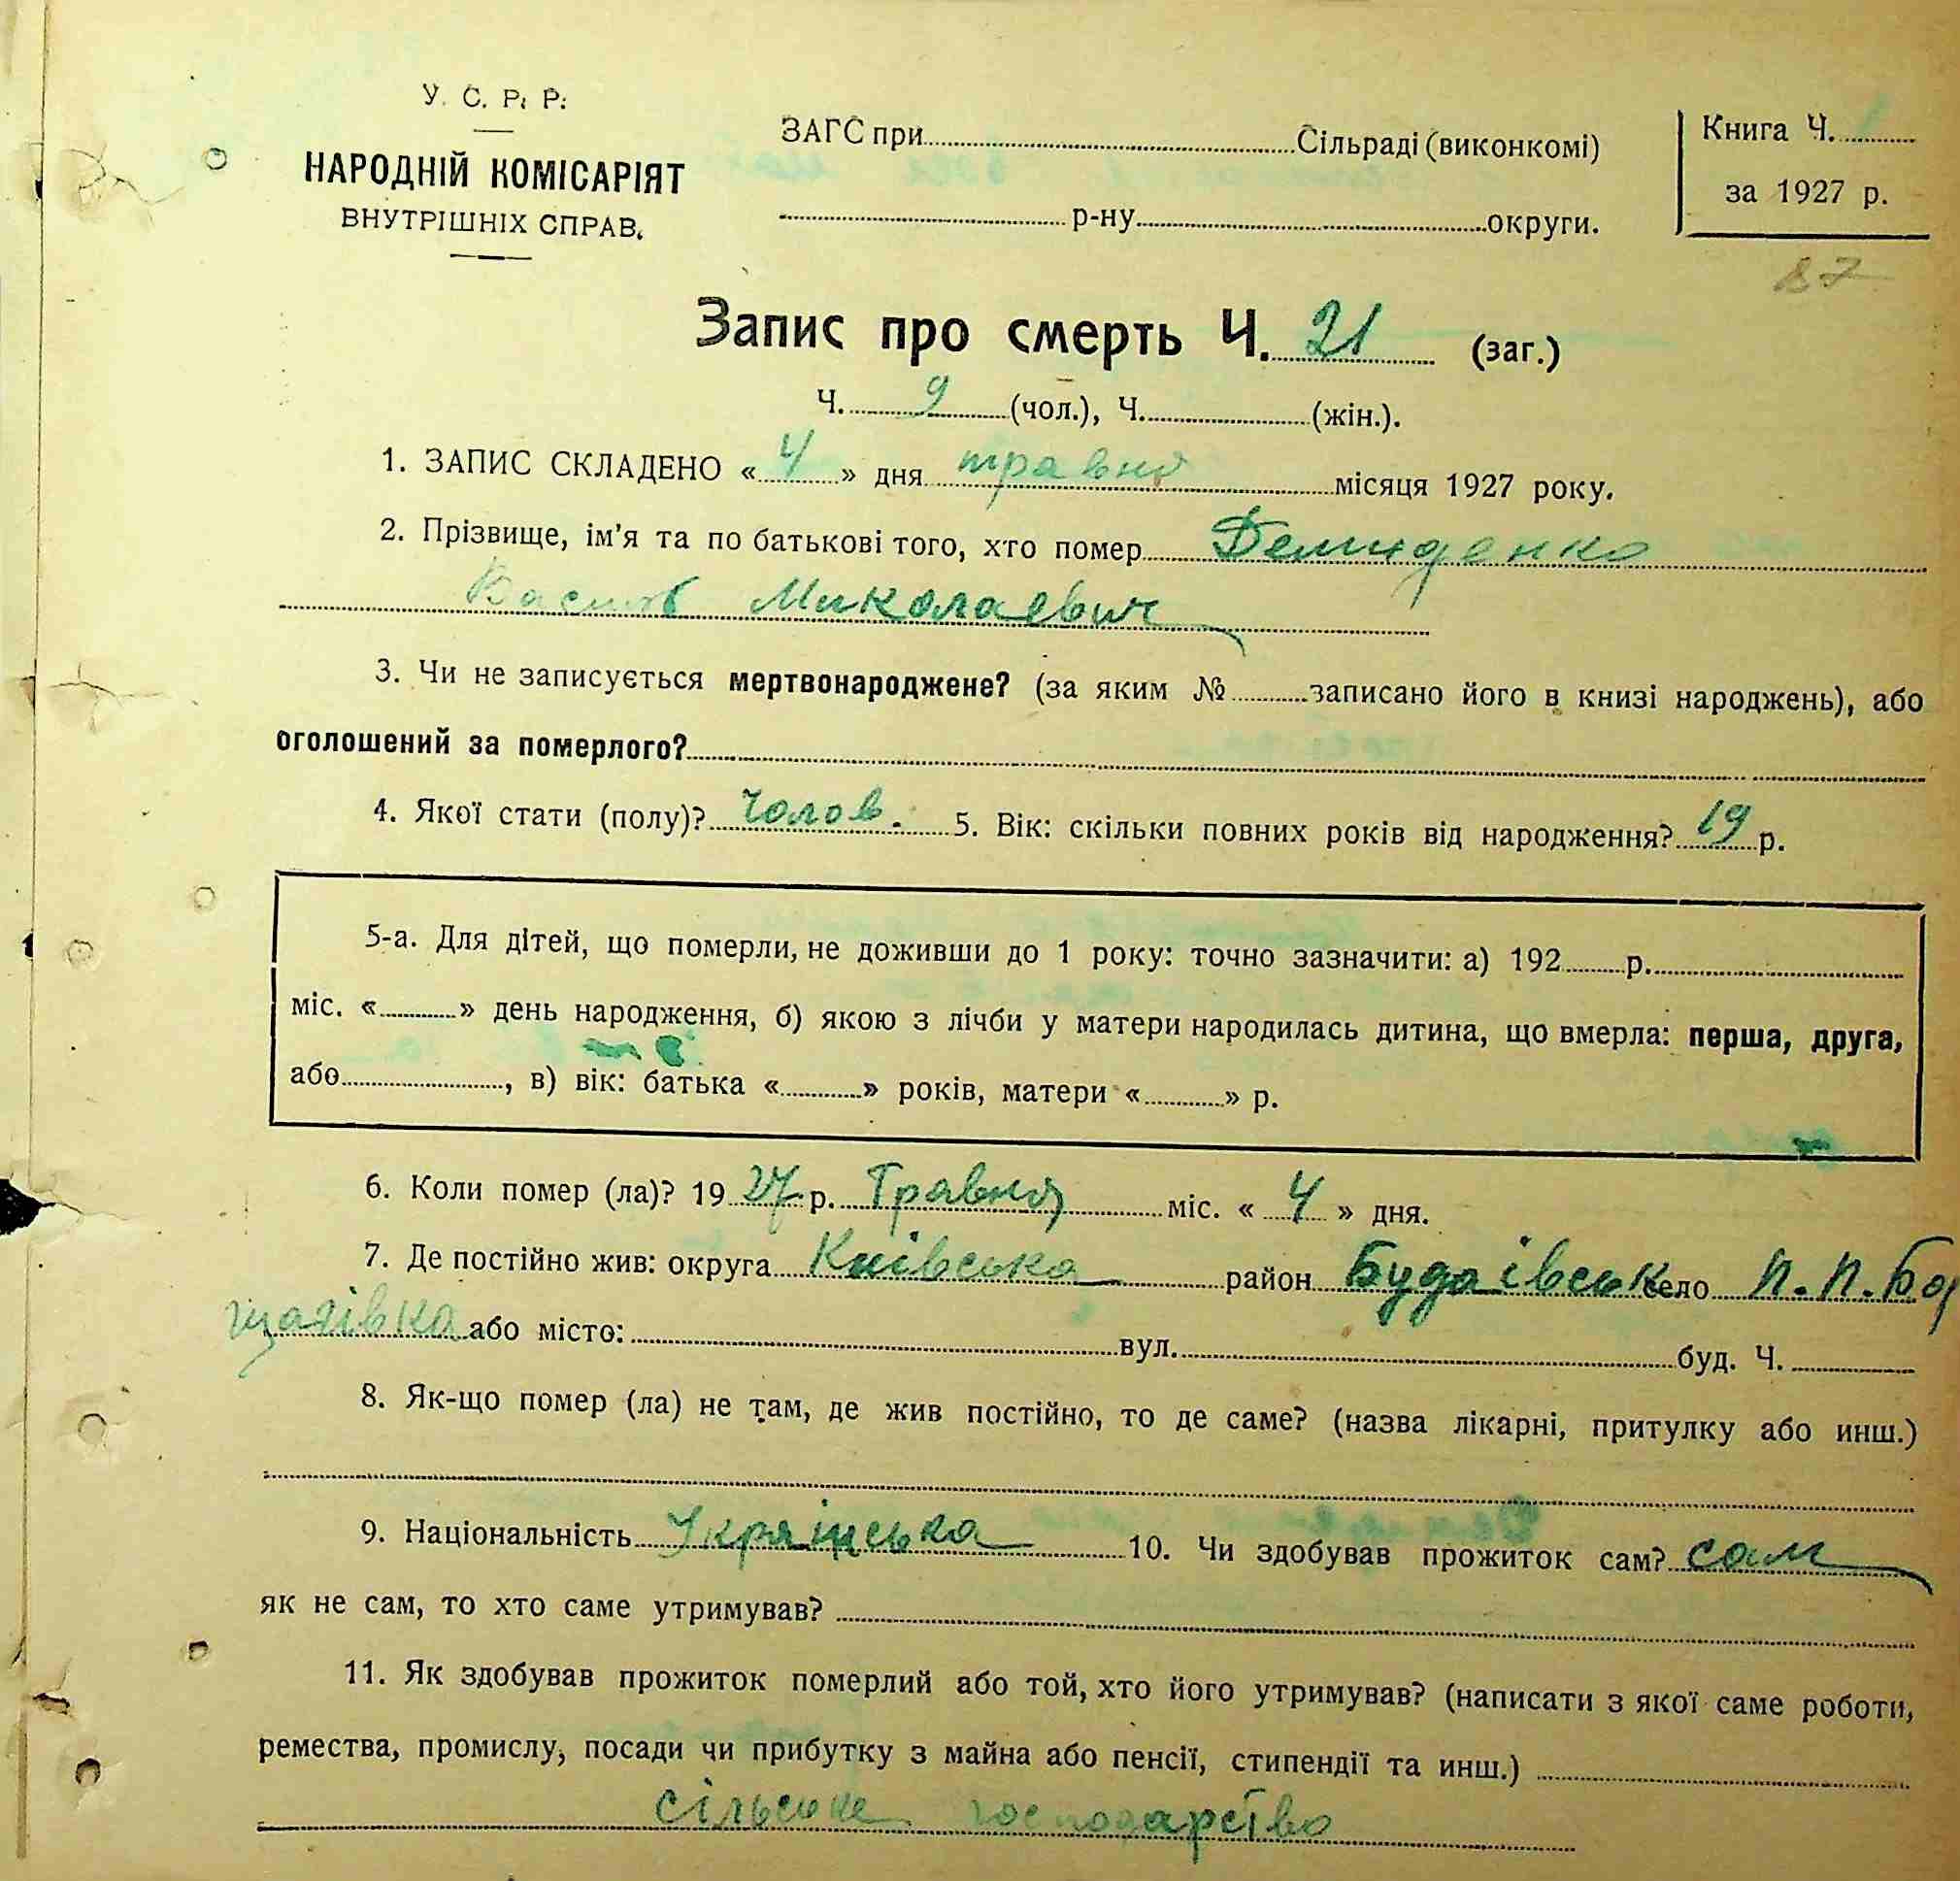 У. С. Р. Р.
НАРОДНІЙ КОМІСАРІЯТ
ВНУТРІШНІХ СПРАВ.
ЗАГС при Сільраді (виконкомі)
р-ну округи.
Книга Ч. 1
за 1927 р.
87
Запис про смерть Ч. 21 (заг.)
Ч. 9 (чол.), Ч. (жін.).
1. ЗАПИС СКЛАДЕНО « 4 » дня травня місяця 1927 року.
2. Прізвище, ім'я та по батькові того, хто помер Демиденко
Василь Миколаевич
3. Чи не записується мертвонароджене? (за яким № записано його в книзі народжень), або
оголошений за померлого?
4. Якої стати (полу)? Чолов. 5. Вік: скільки повних років від народження? 19 р.
5-а. Для дітей, що померли, не доживши до 1 року: точно зазначити: а) 192 р.
міс. « » день народження, б) якою з лічби у матери народилась дитина, що вмерла: перша, друга,
або , в) вік: батька « » років, матери « » р.
6. Коли помер (ла)? 19 27 р. Травня міс. « 4 » дня.
7. Де постійно жив: округа Київська район Будаівськ село П.П.Бор
щагівка або місто: вул. буд. Ч.
8. Як-що помер (ла) не там, де жив постійно, то де саме? (назва лікарні, притулку або инш.)
9. Національність Українська 10. Чи здобував прожиток сам? сам
як не сам, то хто саме утримував?
11. Як здобував прожиток померлий або той, хто його утримував? (написати з якої саме роботи,
ремества, промислу, посади чи прибутку з майна або пенсії, стипендії та инш.)
сільське господарство